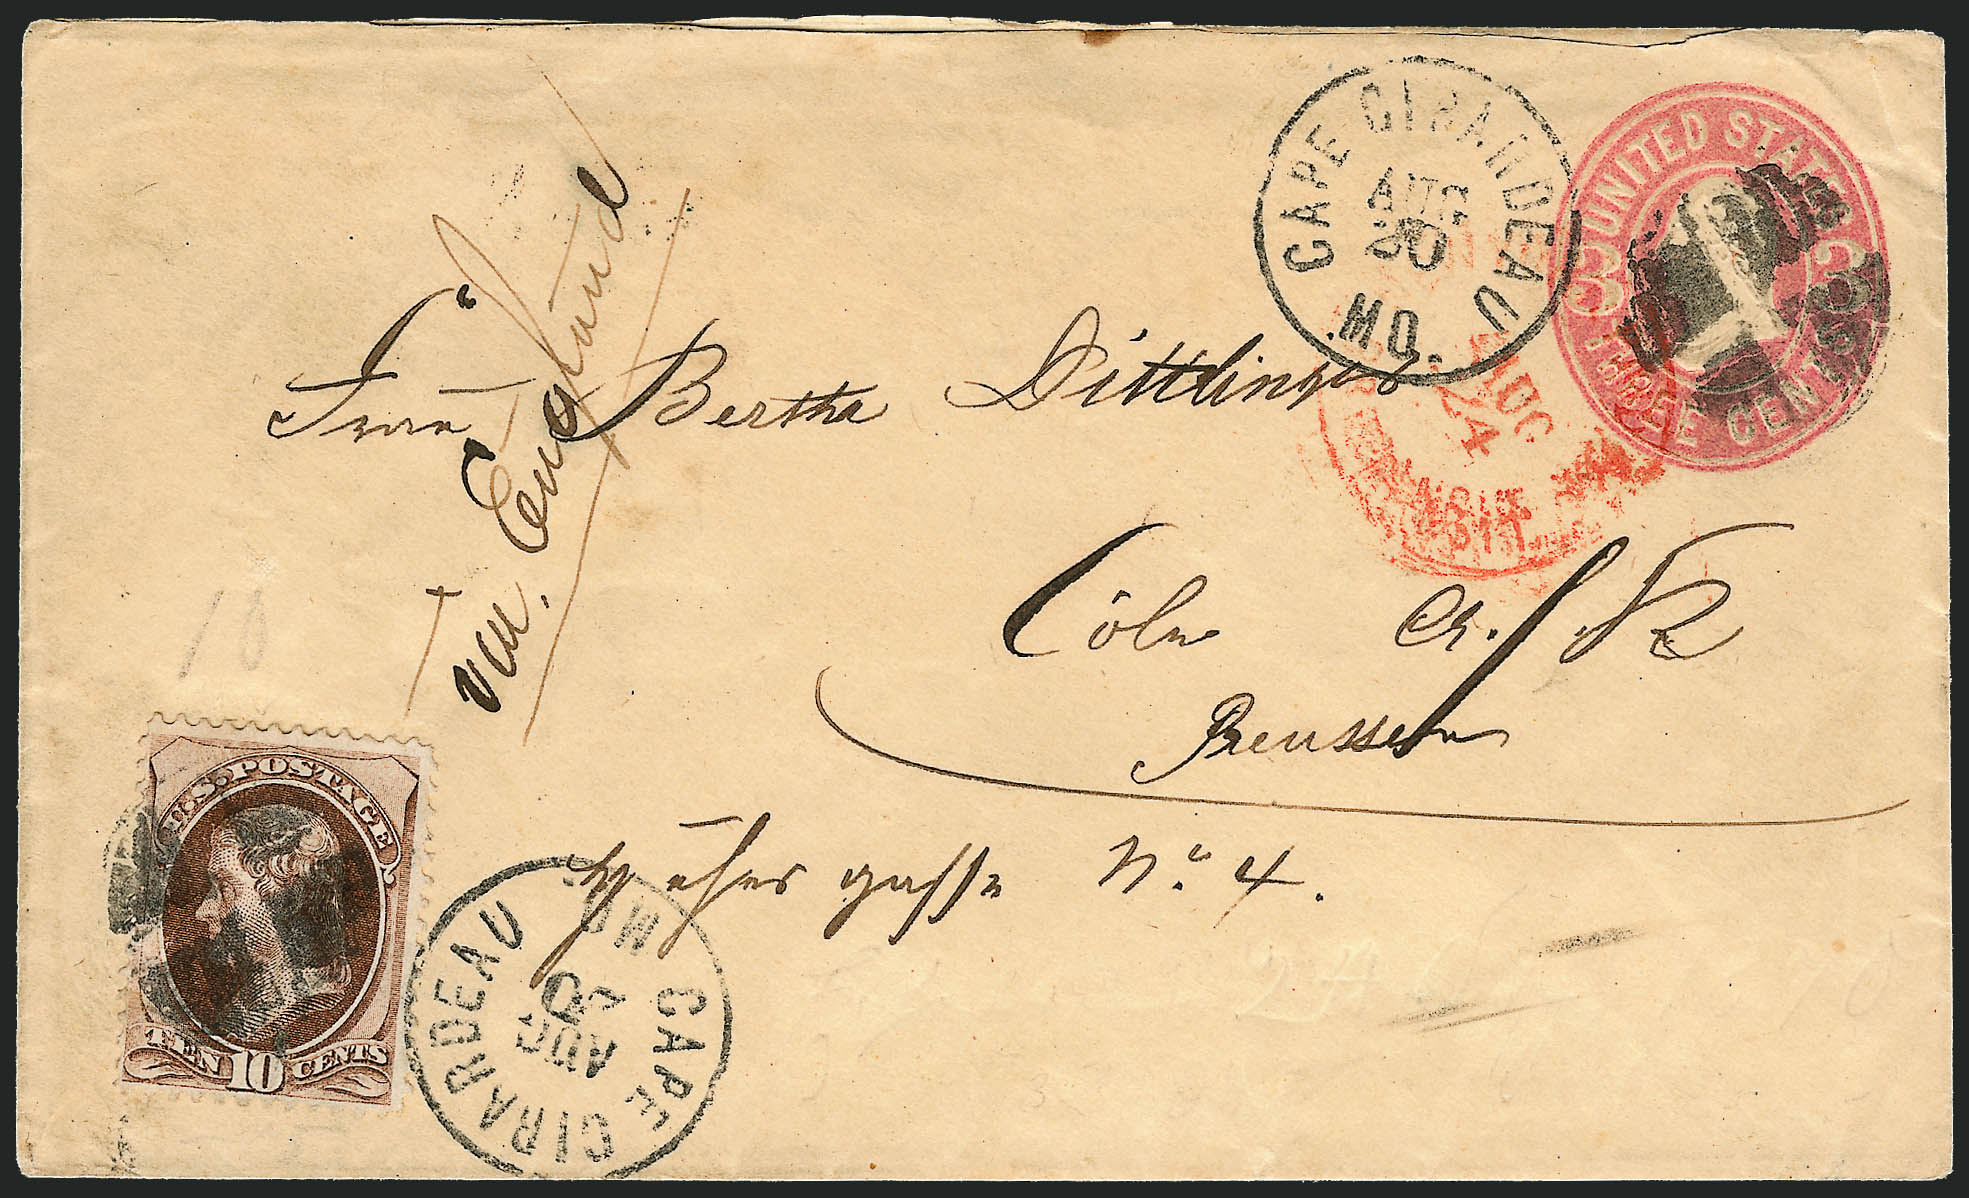 CAPE GIRARDEAU
AUG
20
MO.
UNITED STATES
3 3
THREE CENTS
AUG
24
via England
Frau Bertha Dittlinger
Cöln a./R
Preussen
gasse No. 4.
10
U.S. POSTAGE
TEN 10 CENTS
CAPE GIRARDEAU
AUG
20
MO